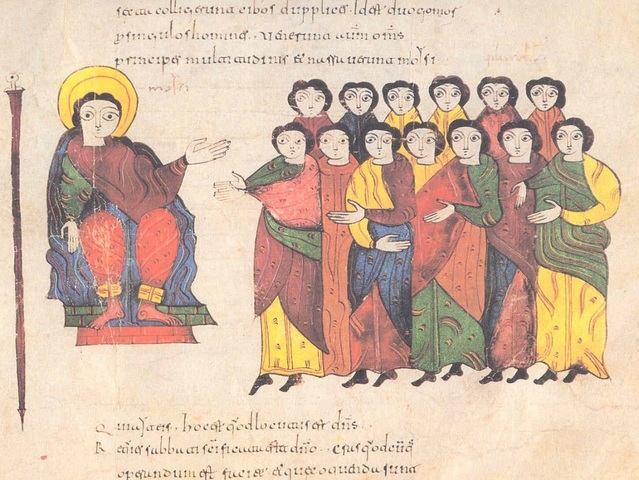 colligerunt cibos dupplices. Id est duo gomor
singulos homines. Venerunt aum oms
principes multitudinis et narraverunt moysi
moysi
Qui ait eis. hoc est quod locutus est dns.
Requies sabbati scificata est dno. Cras quodcumq
operandum est facite et que coquenda sunt